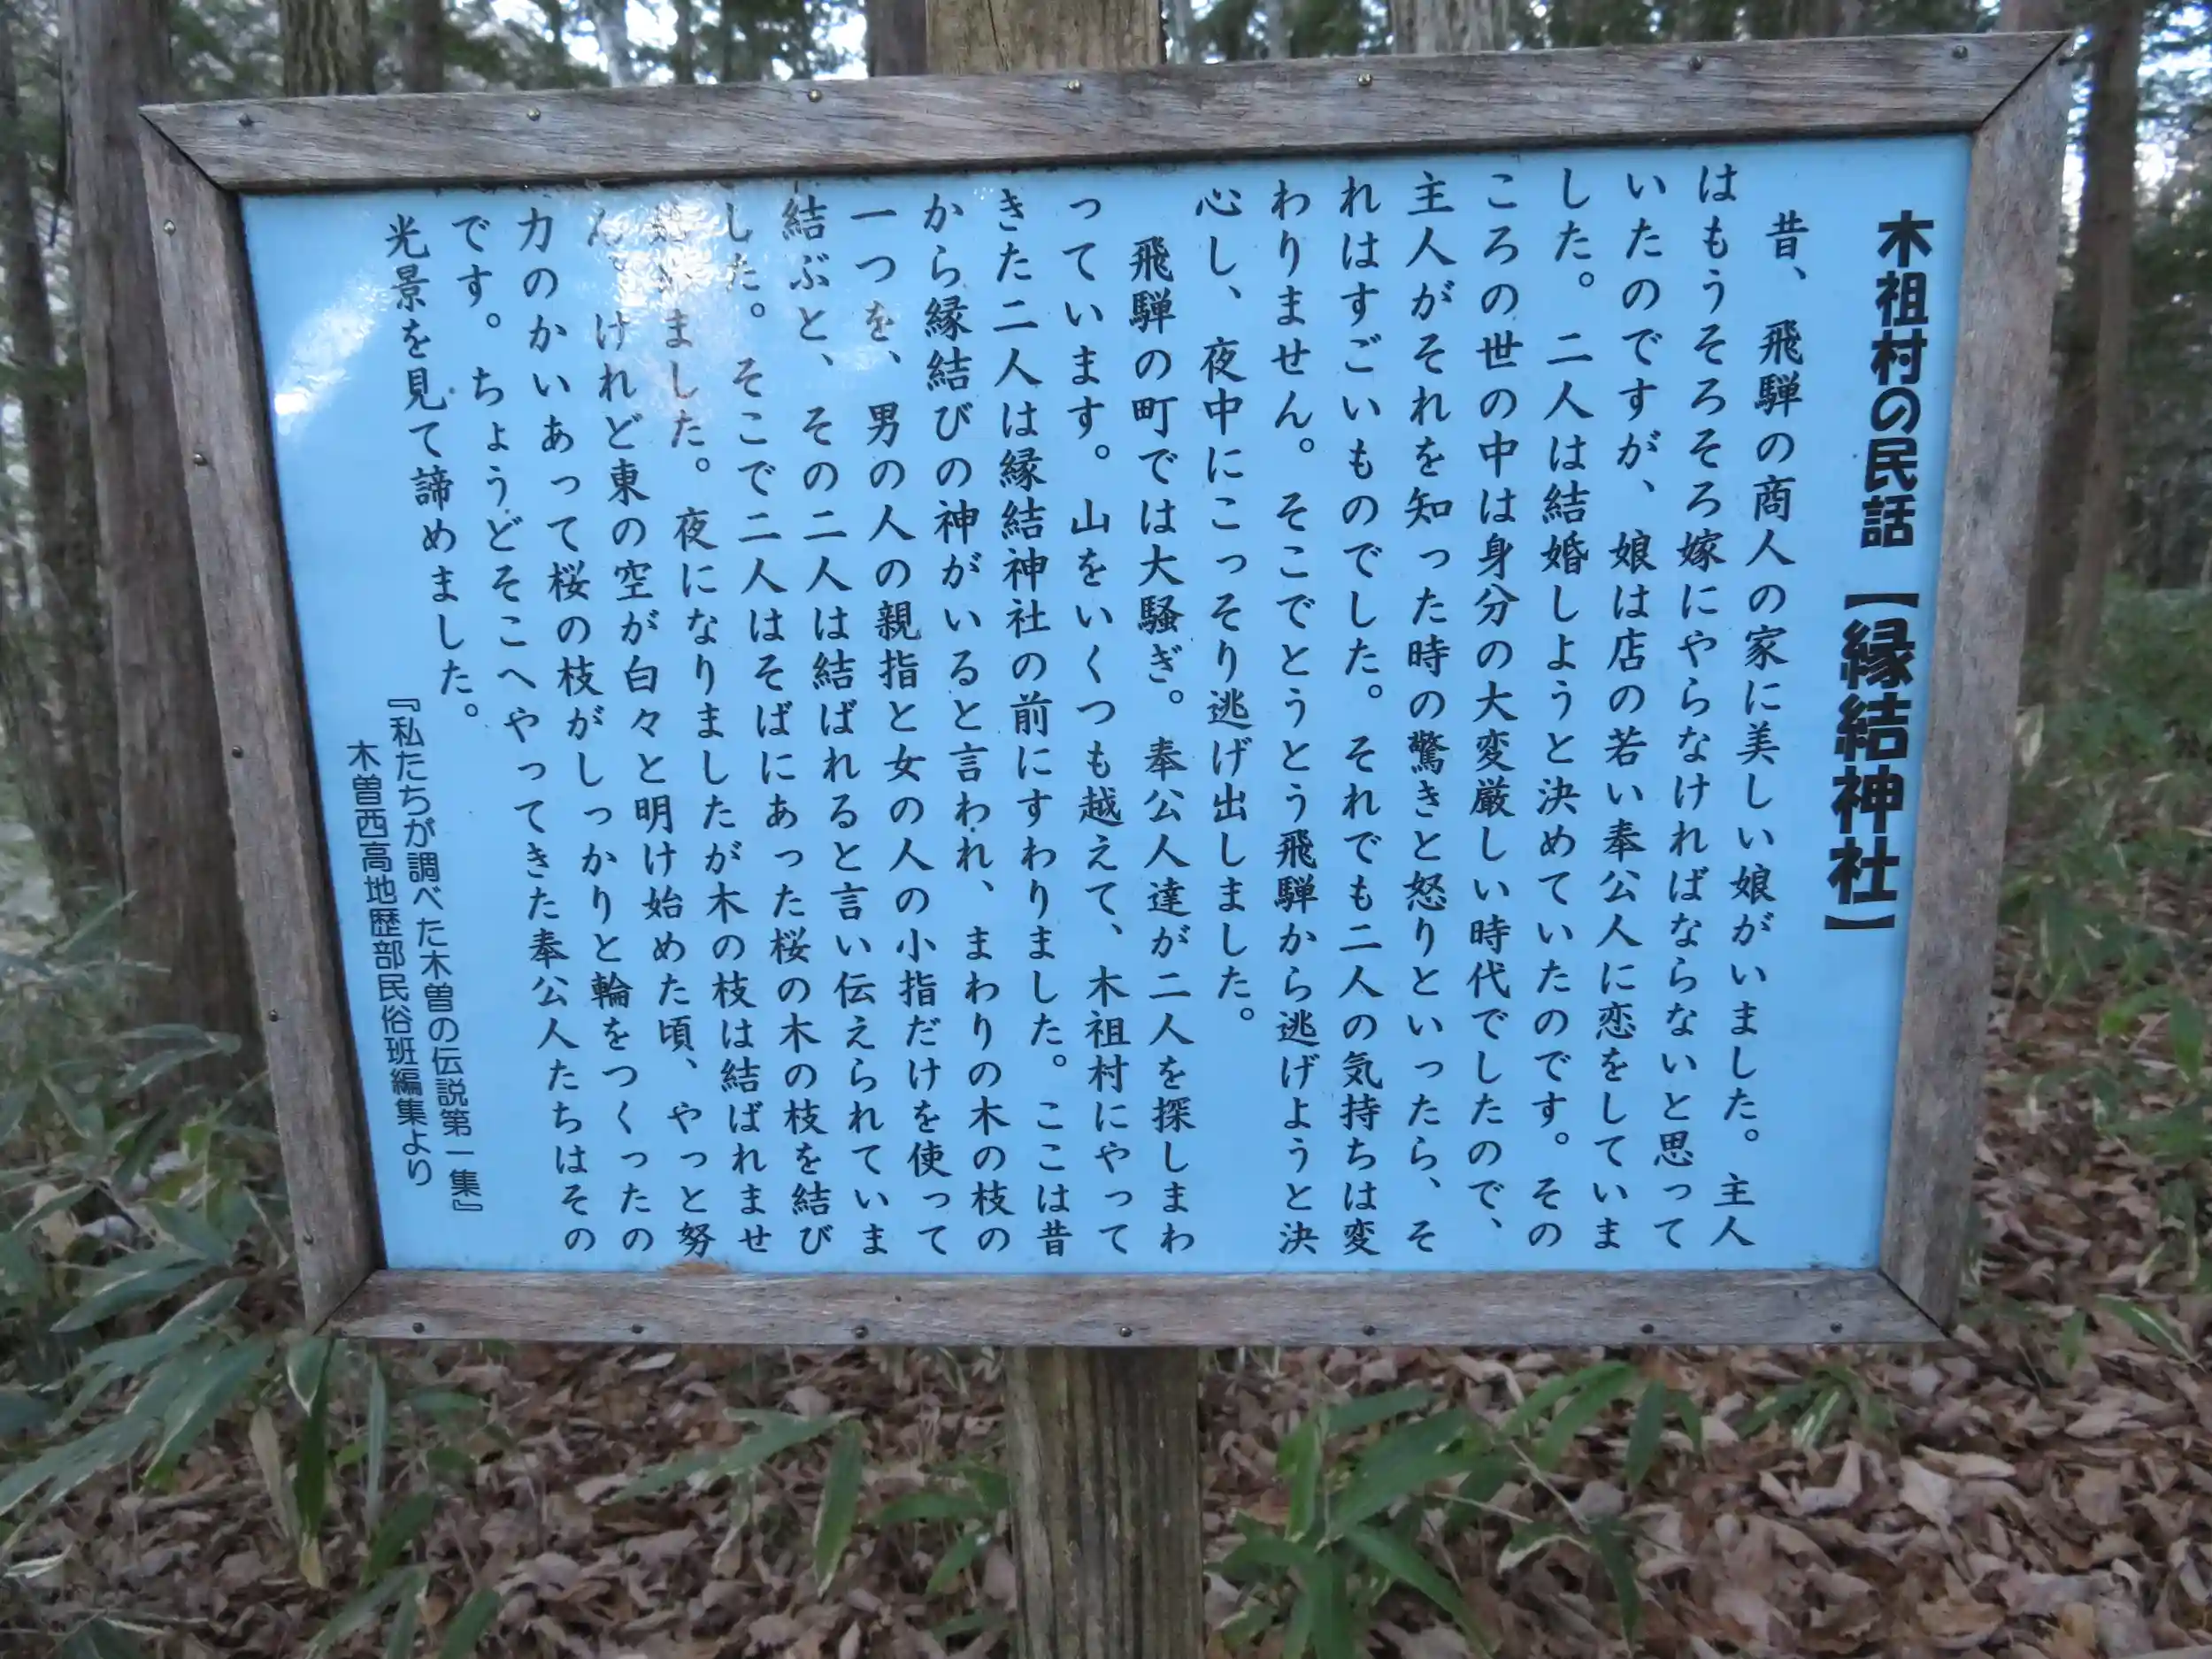 木祖村の民話【縁結神社】
昔、飛騨の商人の家に美しい娘がいました。主人
はもうそろそろ嫁にやらなければならないと思って
いたのですが、娘は店の若い奉公人に恋をしていま
した。二人は結婚しようと決めていたのです。その
ころの世の中は身分の大変厳しい時代でしたので、
主人がそれを知った時の驚きと怒りといったら、そ
れはすごいものでした。それでも二人の気持ちは変
わりません。そこでとうとう飛騨から逃げようと決
心し、夜中にこっそり逃げ出しました。
飛騨の町では大騒ぎ。奉公人達が二人を探しまわ
っています。山をいくつも越えて、木祖村にやって
きた二人は縁結神社の前にすわりました。ここは昔
から縁結びの神がいると言われ、まわりの木の枝の
一つを、男の人の親指と女の人の小指だけを使って
結ぶと、その二人は結ばれると言い伝えられていま
した。そこで二人はそばにあった桜の木の枝を結び
ました。夜になりましたが木の枝は結ばれませ
ん。けれど東の空が白々と明け始めた頃、やっと努
力のかいあって桜の枝がしっかりと輪をつくったの
です。ちょうどそこへやってきた奉公人たちはその
光景を見て諦めました。
『私たちが調べた木曽の伝説第一集』
木曽西高地歴部民俗班編集より